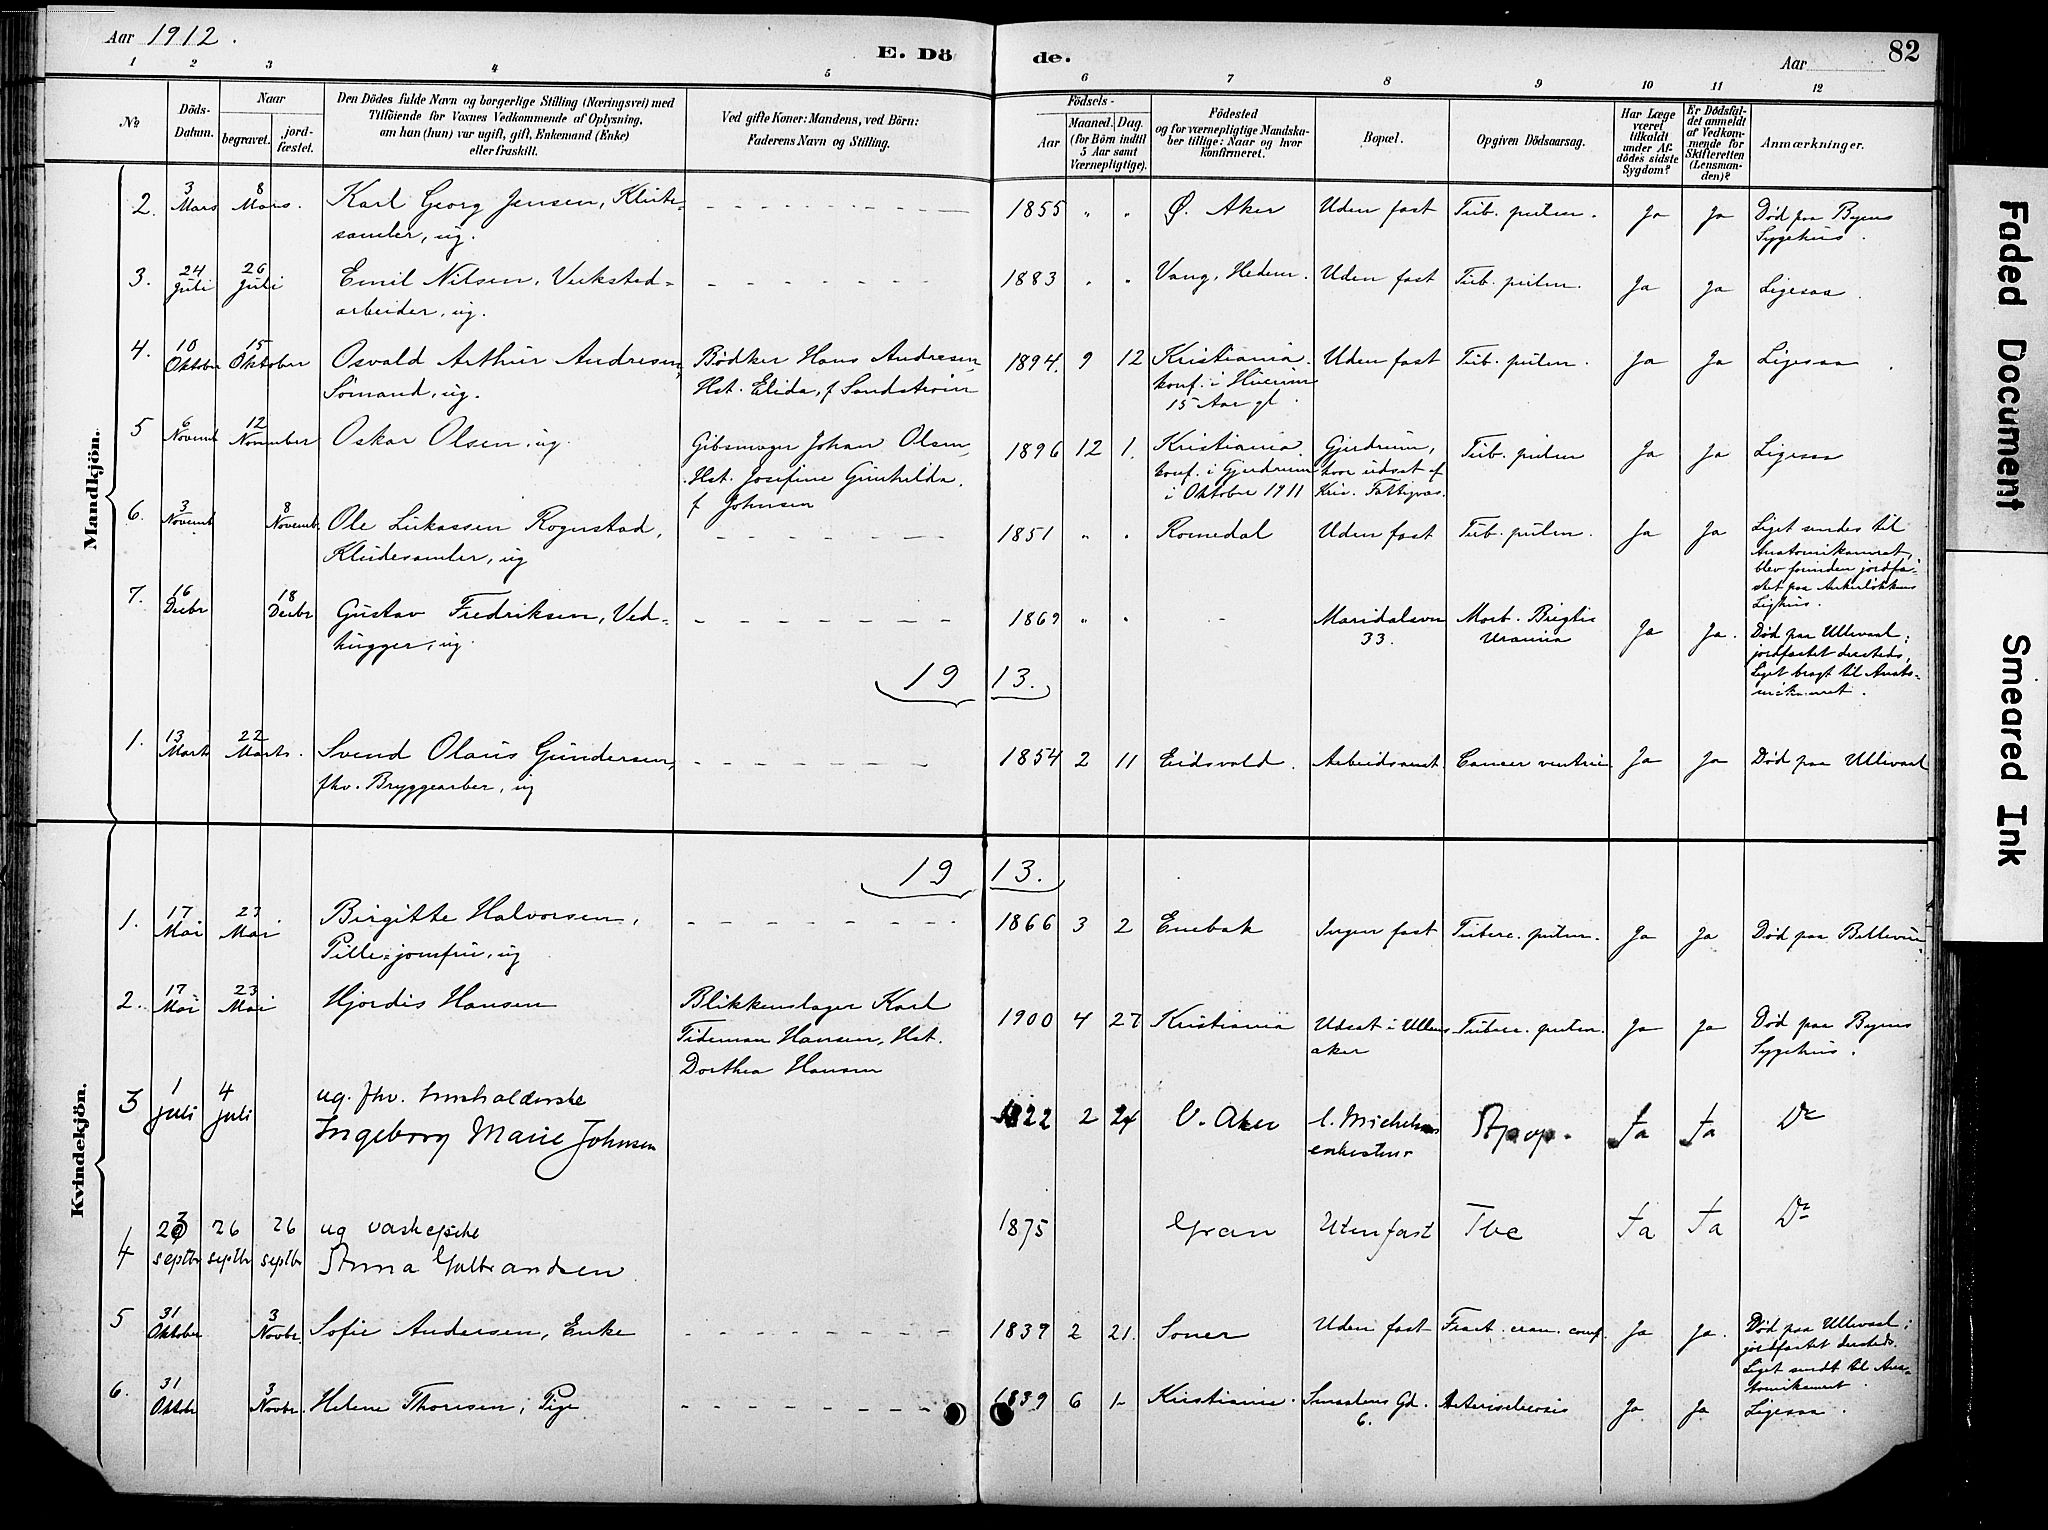 Aar 1912.
E. Dö de.
Aar 82
1 2 3 4 5 6 7 8 9 10 11 12
No
Döds-Datum.
Naar
begravet.
jord-fæstet.
Den Dödes fulde Navn og borgerlige Stilling (Næringsvei) med
Tilföiende for Voxnes Vedkommende af Oplysning,
om han (hun) var ugift, gift, Enkemand (Enke)
eller fraskilt.
Ved gifte Koner: Mandens, ved Börn:
Faderens Navn og Stilling.
Födsels-
Aar
Maaned. Dag.
(for Börn indtil
5 Aar samt
Værnepligtige).
Födested
og for værnepligtige Mandska-
ber tillige: Naar og hvor
konfirmeret.
Bopæl.
Opgiven Dödsaarsag.
Har Læge
været
tilkaldt
under Af-
dödes sidste
Sygdom?
Er Dødsfal-
det anmeldt
af Vedkom-
mende for
Skifteretten
(Lensman-
den)?
Anmærkninger.
Mandkjön.
2. 3 Mars 8 Mars. Karl Georg Jensen, Klude-
samler, ug.
1855 " " Ø. Aker Uden fast Tub. pulm. Ja Ja Død paa Byens
Sygehus.
3. 24 Juli 26 Juli Emil Nilsen, Verksted-
arbeider, ug.
1883 " " Vang, Hedem. Uden fast Tub. pulm. Ja Ja Ligesaa.
4. 10 Oktober 15 Oktober Osvald Arthur Andresen,
Sömand, ug.
Bødker Hans Andresen,
Hst. Elida, f Sandström
1894. 9 12 Kristiania.
konf. i
15 Aar gl.
Uden fast Tub. pulm. Ja Ja Ligesaa.
5 6 Novemb 12 November Oskar Olsen, ug.
Gibsmager Johan Olsen,
Hst. Josefine Gunhilda,
f Johnsen
1896 12 1. Kristiania.
konf. i Gjerdrum
i Oktober 1911
Gjerdrum,
hvor udsat af
Kria. Fattigvæs.
Tub. pulm Ja Ja Ligesaa
6. 3 Novemb 8 Novemb. Ole Lukassen Rognstad,
Kludesamler, ug
1851 " " Romedal Uden fast Tub. pulm. Ja Ja Liget sendes til
Anatomikamret,
blev forinden jordfæ-
stet paa Ankerløkkens
Lighus.
7. 16 Decbr 18 Decbr Gustav Fredriksen, Ved-
hugger, ug.
1869 " " - Maridalsvn
33.
Morb. Brigtii
Uræmia
Ja Ja. Død paa Ullevaal;
jordfæstet dersteds,
Liget bragt til Anato-
mikamret.
19 13.
1. 13 Marts 22 Marts. Svend Olaus Gundersen,
fhv. Bryggearber, ug
1854 2 11 Eidsvold. Arbeidsanst. Cancer ventric Ja Ja Død paa Ullevaal
Kvindekjön.
19 13.
1. 17 Mai 23 Mai Birgitte Halvorsen,
Pille-jomfru, ug
1866 3 2 Enebak Ingen fast Tuberc. pulm. Ja Ja Død paa Bellevue.
2. 17 Mai 23 Mai Hjordis Hansen
Blikkenslager Karl
Tideman Hansen, Hst.
Dorthea Hansen
1900 4 27 Kristiania Udsat i Ullens-
aker
Tuberc. pulm. Ja Ja Død paa Byens
Sygehus.
3 1 Juli 4 Juli ug. fhv. husholderske
Ingeborg Marie Johnsen
1822 2 24 V. Aker
Apop. Ja Ja Do
4 septbr 26 septbr 26 septbr ug vaskepike
Anna Gulbrandsen
1875 Gran Uten fast Tbc Ja Ja Do
5 31 Oktober 3 Novbr. Sofie Andersen, Enke
1839 2 21. Soner Uden fast Fract. cran. comp. Ja Ja. Død paa Ullevaal;
jordfæstet dersteds.
Liget sendt til Ana-
tomikamret.
6. 31 Oktobr 3 Novbr. Helene Thoresen, Pige
1839 6 1 Kristiania. Smaalens Gd.
6.
Arteriosclerosis Ja Ja Ligesaa.
Faded Document
Smeared Ink